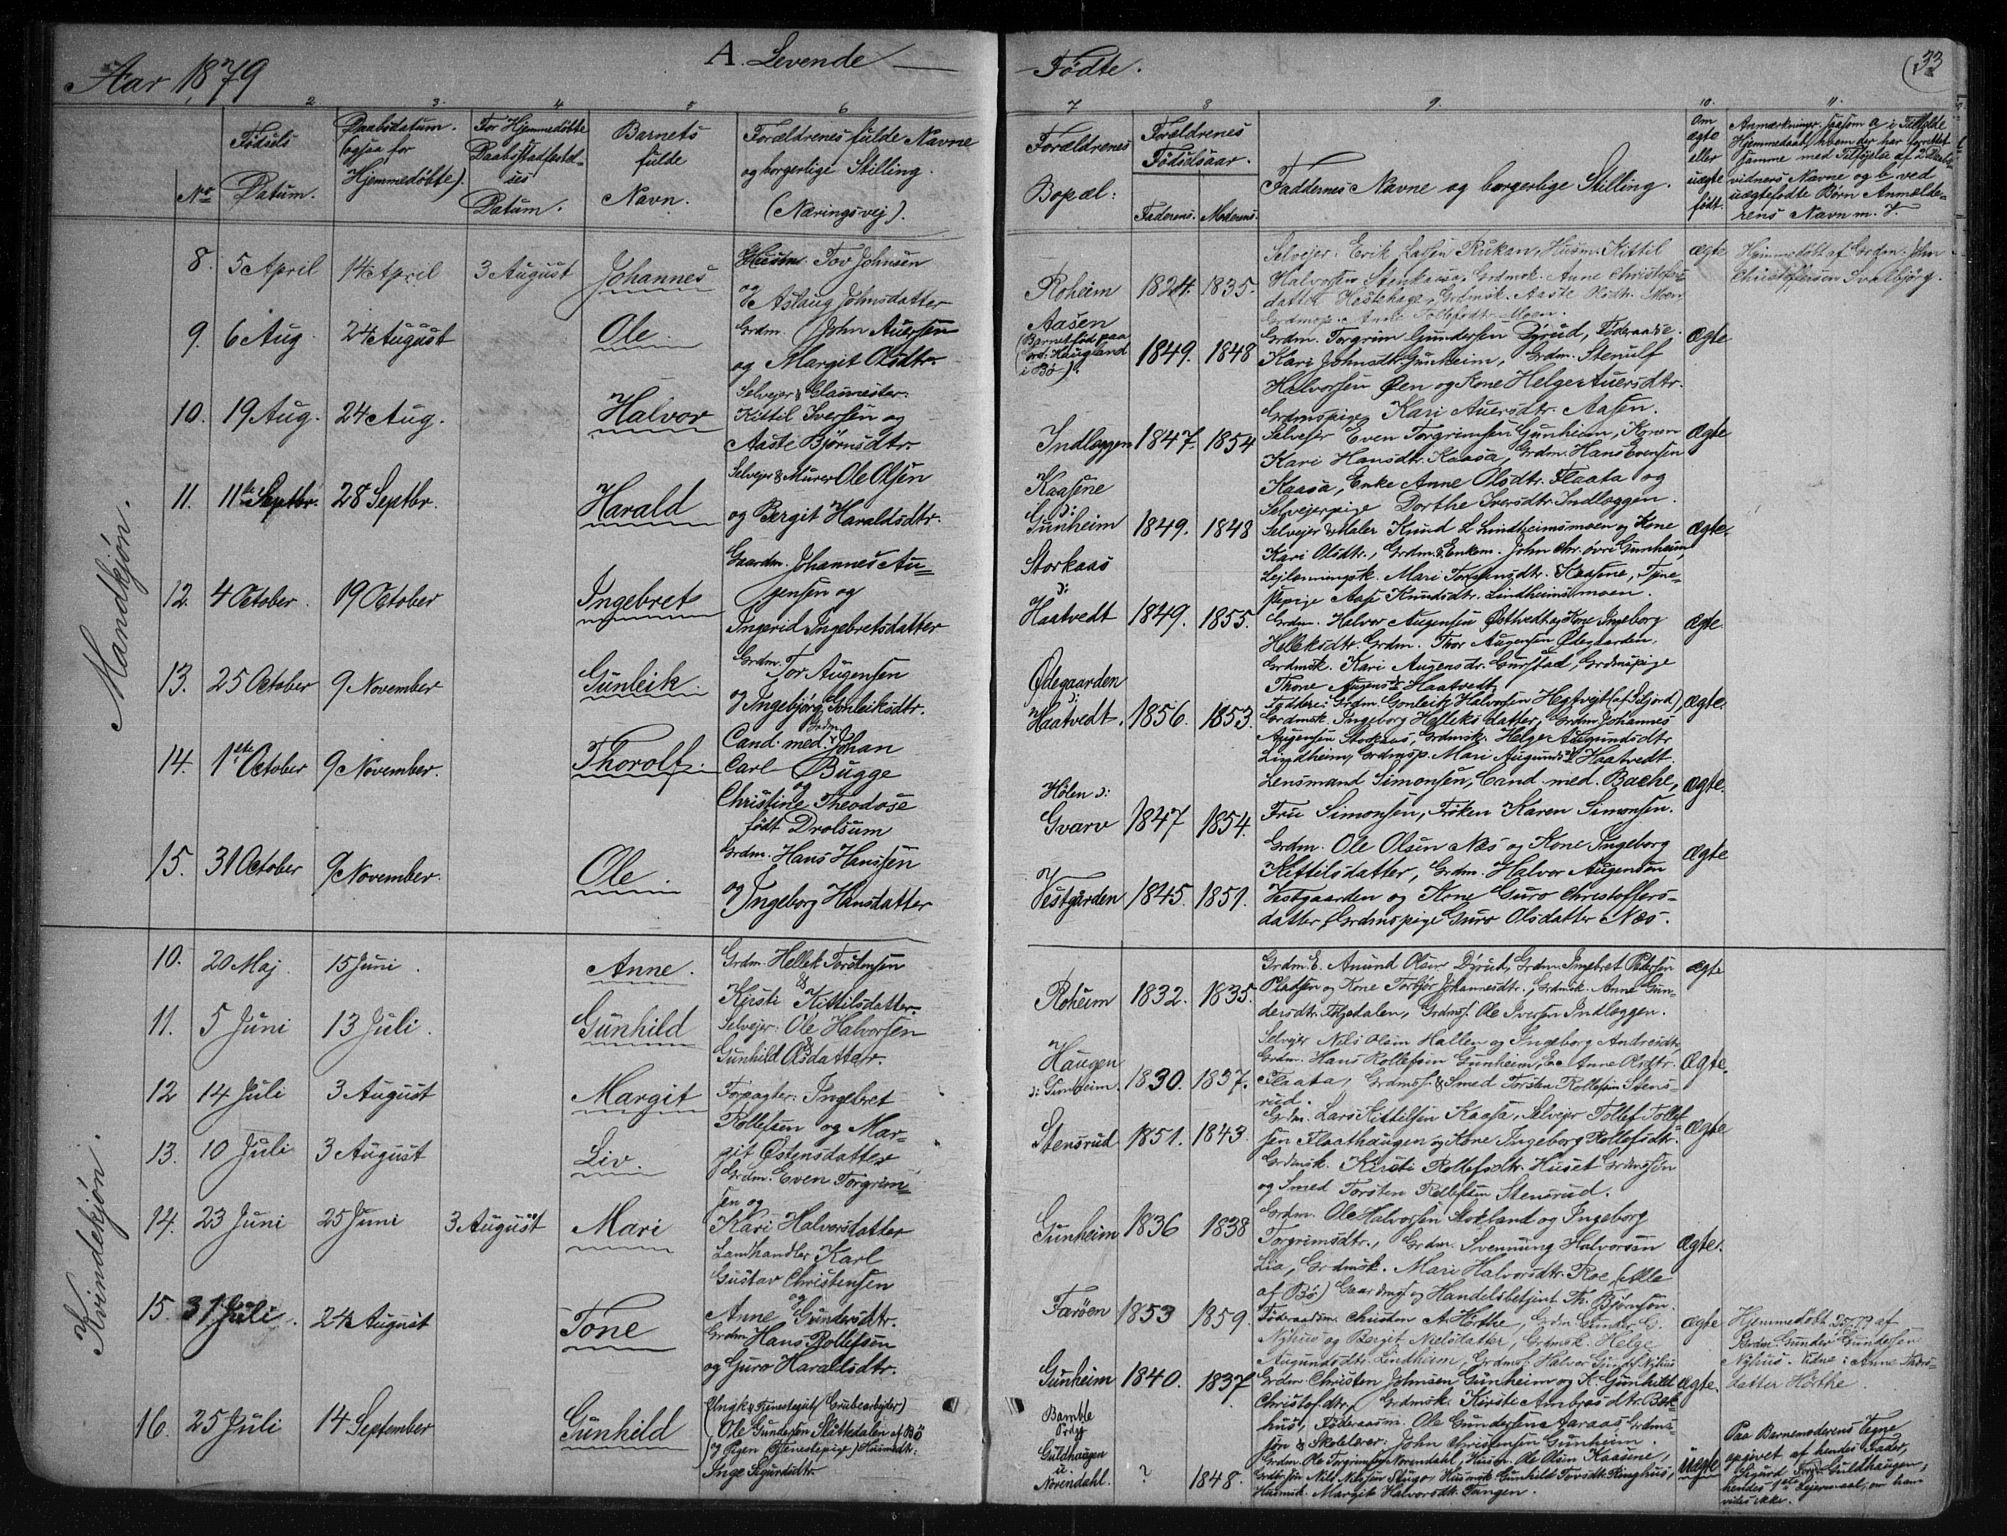 Aar 1879
A. Levende
Fødte.
33
2 3. 4 5 6
7 8 9. 10. 11.
No
Fødsels
Datum.
Daabsdatum.
ogsaa for
Hjemmedøbte).
For Hjemmedøbte
Daabsstadfestel-
ses
Datum.
Barnets
fulde
Navn.
Forældrenes fulde Navne
og borgerlige Stilling.
(Næringsvej).
Forældrenes
Bopæl:
Forældrenes
Fødselsaar.
Faderens. Moderens.
Faddernes Navne og borgerlige Stilling.
Om
ægte
eller
uægte
født.
Anmærkninger, saasom a i Tilfælde
Hjemmedaab, hvem der har forrettet
samme med Tilføjelse af 2 Daabs-
vidners Navne og b, ved
uægtefødte Børn Anmelde-
rens Navn m. V.
Mandkjøn.
8. 5 April 14 April 3 August Johannes
Husm. Tov Johnsen
og
Aslaug Johnsdatter
Roheim 1824. 1835.
Selvejer Erik Larsen Rukan, Husm. Kittil
Halvorsen Stenkaasa, Grdmsk. Anne Christofers-
datter Haatehage, Grdmsk. Aaste Olsdtr. Moen
Grdmsp. Anne Tollefsdtr Moen.
ægte
Hjemmedøbt af Grdm. John
Christophersen Svalbjørg.
9. 6 Aug. 24 August Ole
Grdm. John Auersen
og Margit Olsdtr.
Aasen
(Barnet fød paa
Grd. Haugland
i Bø).
1849. 1848
Grdm. Torgrim Gundersen Dyrud, Føderaadsk.
Kari Johnsdtr. Gunheim, Grdm. Stenulf
Halvorsen Øen og Kone Helge Auersdtr.
Grdmspige Kari Auersdtr. Aasen.
ægte
10. 19 Aug. 24 Aug. Halvor
Selvejer & Glasmester
Kittil Iversen og
Aaste Bjørnsdtr.
Indlæggen 1847. 1854
Selvejer Even Torgrimsen Gunheim, Konen
Kari Hansdtr. Kaasa, Grdm. Hans Evensen
Kaasa, Enke Anne Olsdtr. Flaata og
Selvejerpige Dorthe Iversdtr. Indlæggen.
ægte
11. 11te Septbr. 28 Septbr. Harald
Selvejer & Murer Ole Olsen
og Bergit Haraldsdtr.
Kaasene
Gunheim 1849. 1848
Selvejer & Maler Knud L. Lindheimsmoen og Kone
Kari Olsdtr., Grdm. & Enkem. John Chr. øvre Gunheim,
Mari Kaasene, Tjene-
stepige Aase Knudsdtr. Lindheimsmoen.
ægte.
12. 4 October. 19 October Ingebret
Gaardm. Johannes Au-
gensen og
Ingerid Ingebretsdatter
Storkaas
Haatvedt 1849. 1855.
Grdm. Halvor Augensen Østvedt og Kone Ingeborg
Helleksdtr. Grdm. Thor Augensen Ødegaarden,
Grdmsk. Kari Augensdtr. Gurstad, Grdmspige
Thone Augensdtr. Haatvedt.
ægte.
13. 25 October 9 November Gunleik.
Grdm. Tor Augensen
og Ingebjørg Gonleiksdtr.
Ødegaarden
Haatvedt. 1856. 1853.
Faddere: Grdm. Gonleik Halvorsen (af Seljord),
Grdmsk. Ingeborg Helleksdatter, Grdm. Johannes
Augensen Storkaas, Grdmsk. Helge Augundsdtr
Lindheim, Grdmsp. Mari Augundsdtr. Haatvedt.
ægte.
14. 1ste October 9 November. Thorolf.
Cand. med. Johan
Carl Bugge
og
Christine Theodose
født Drolsum
Hølen
Gvarv 1847 1854.
Lensmand Simonsen, Cand. med. Bache,
Fru Simonsen, Frøken Karen Simonsen.
ægte.
15. 31 October 9 November. Ole.
Grdm. Hans Hansen
og
Ingeborg Hansdatter
Vestgården 1845. 1851.
Grdm. Ole Olsen Næs og Kone Ingeborg
Kittilsdatter, Grdm. Halvor Augensen
Vestgaarden og Kone Guro Christoffers-
datter, Grdmspige Guro Olsdatter Næs.
ægte
Kvindekjøn.
10. 20 Maj. 15 Juni. Anne.
Grdm. Hellek Torstensen
&
Kirsti Kittilsdatter.
Roheim 1832. 1835.
Grdm. E. Anund Olsen Dyrud, Grdm. Ingebret Pedersen
Pladsen og Kone Torbjør Johannesdtr., Grdmsk. Anne Gun-
dersdtr. Tjødalen, Grdms. Ole Iversen Indlæggen.
ægte
11. 5 Juni 13 Juli. Gunhild
Selvejer Ole Halvorsen
&
Gunhild Olsdatter.
Haugen
Gunheim. 1830. 1837.
Selvejer Nils Olsen Hallen og Ingeborg Andreasdtr,
Grdm. Hans Rollefsen Gunheim, En. Anne Olsdtr.
Flaata, Grdms. & Smed Torsten Rollefsen Stens-
rud.
ægte.
12 14 Juli 3 August Margit
Forpagter Ingebret
Rollefsen og Mar-
git Østensdatter
Stensrud 1851. 1843.
Grdm. Lars Kittelsen Kaasa, Selvejer Tollef Tollef-
sen Flaathaugen og Kone Ingeborg Rollefsdtr.
Grdmsk. Kirsti Rollefsdtr. Huset Grdmssøn
og Smed Torsten Rollefsen Stensrud.
ægte
13. 10 Juli 3 August Liv.
Grdm. Even Torgrim-
sen og
Kari Halvorsdatter
Gunheim 1836 1838
Grdm. Ole Halvorsen Stokland og Ingeborg
Torgrimsdtr., Grdm. Svennung Halvorsen
Lia, Grdmsk. Mari Halvorsdtr. Roe (Alle
af Bø) Gaardmss. og Handelsbetjent Th. Bjørnson.
ægte.
14. 23 Juni 25 Juni 3 August Mari
Landhandler Karl
Gustav Christensen
og
Anne Gundersdtr.
Farøen 1853 1859.
Føderaadsm. Christen A. Hørthe, Grdm. Gunder G.
Nyhus og Bergit Nielsdatter, Grdmsk. Helge
Augundsdtr. Lindheim, Grdms. Halvor Gunders. Nyhus
ægte
Hjemmedøbt 25/6 79 af
Grdm. Gunder Gundersen
Nyhus. Vidne: Anne Thors-
datter Hørthe.
15. 31 Juli. 24 August Tone
Grdm. Hans Rollefsen
og Guro Haraldsdtr.
Gunheim 1840. 1837
Grdm Christen Johnsen Gunheim og K. Gunhild
Christofdtr., Grdmsk. Kirsti Ambrosdtr. Bak-
hus, Føderaadsm. Ole Gundersen Aaraas Grdms-
søn & Skolelærer John Christensen Gunheim.
ægte.
16. 25 Juli 14 September Gunhild
(Ungk. & Tjenestegut (Grubearbejder)
Ole Gundersen Slåttedalen af Bø
og Pigen (Tjenestepige) Husmdtr.
Inge Sigurdsdtr.
Bamble
Guldhaugen
u.
Norendahl. ? 1848.
Grdm. Ole Torgrimsen Norendahl, Husm. Ole Olsen Kaasene,
Grdmsøn Nils Nilsen Haugo, Husmsk. Gunhild Tovsdtr. Ringhus,
Husmsk. Margit Halvorsdtr. Tangen.
uægte
Paa Barnemoderens Vegne
opgivet af hendes Fader,
Sigurd Guldhaugen;
hendes 1ste Lejermaal, om hans
vides ikke.